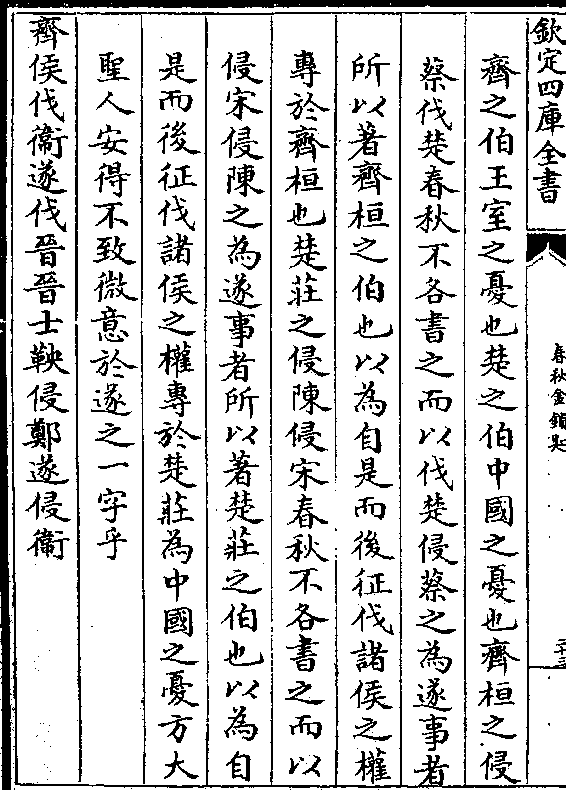 欽定四庫全書
春秋金鎖匙
齊之伯王室之憂也楚之伯中國之憂也齊桓之侵
蔡伐楚春秋不各書之而以伐楚侵蔡之為遂事者
所以著齊桓之伯也以為自是而後征伐諸侯之權
專於齊桓也楚莊之侵陳侵宋春秋不各書之而以
侵宋侵陳之為遂事者所以著楚莊之伯也以為自
是而後征伐諸侯之權專於楚莊為中國之憂方大
聖人安得不致微意於遂之一字乎
齊侯伐衞遂伐晉晉士鞅侵鄭遂侵衞